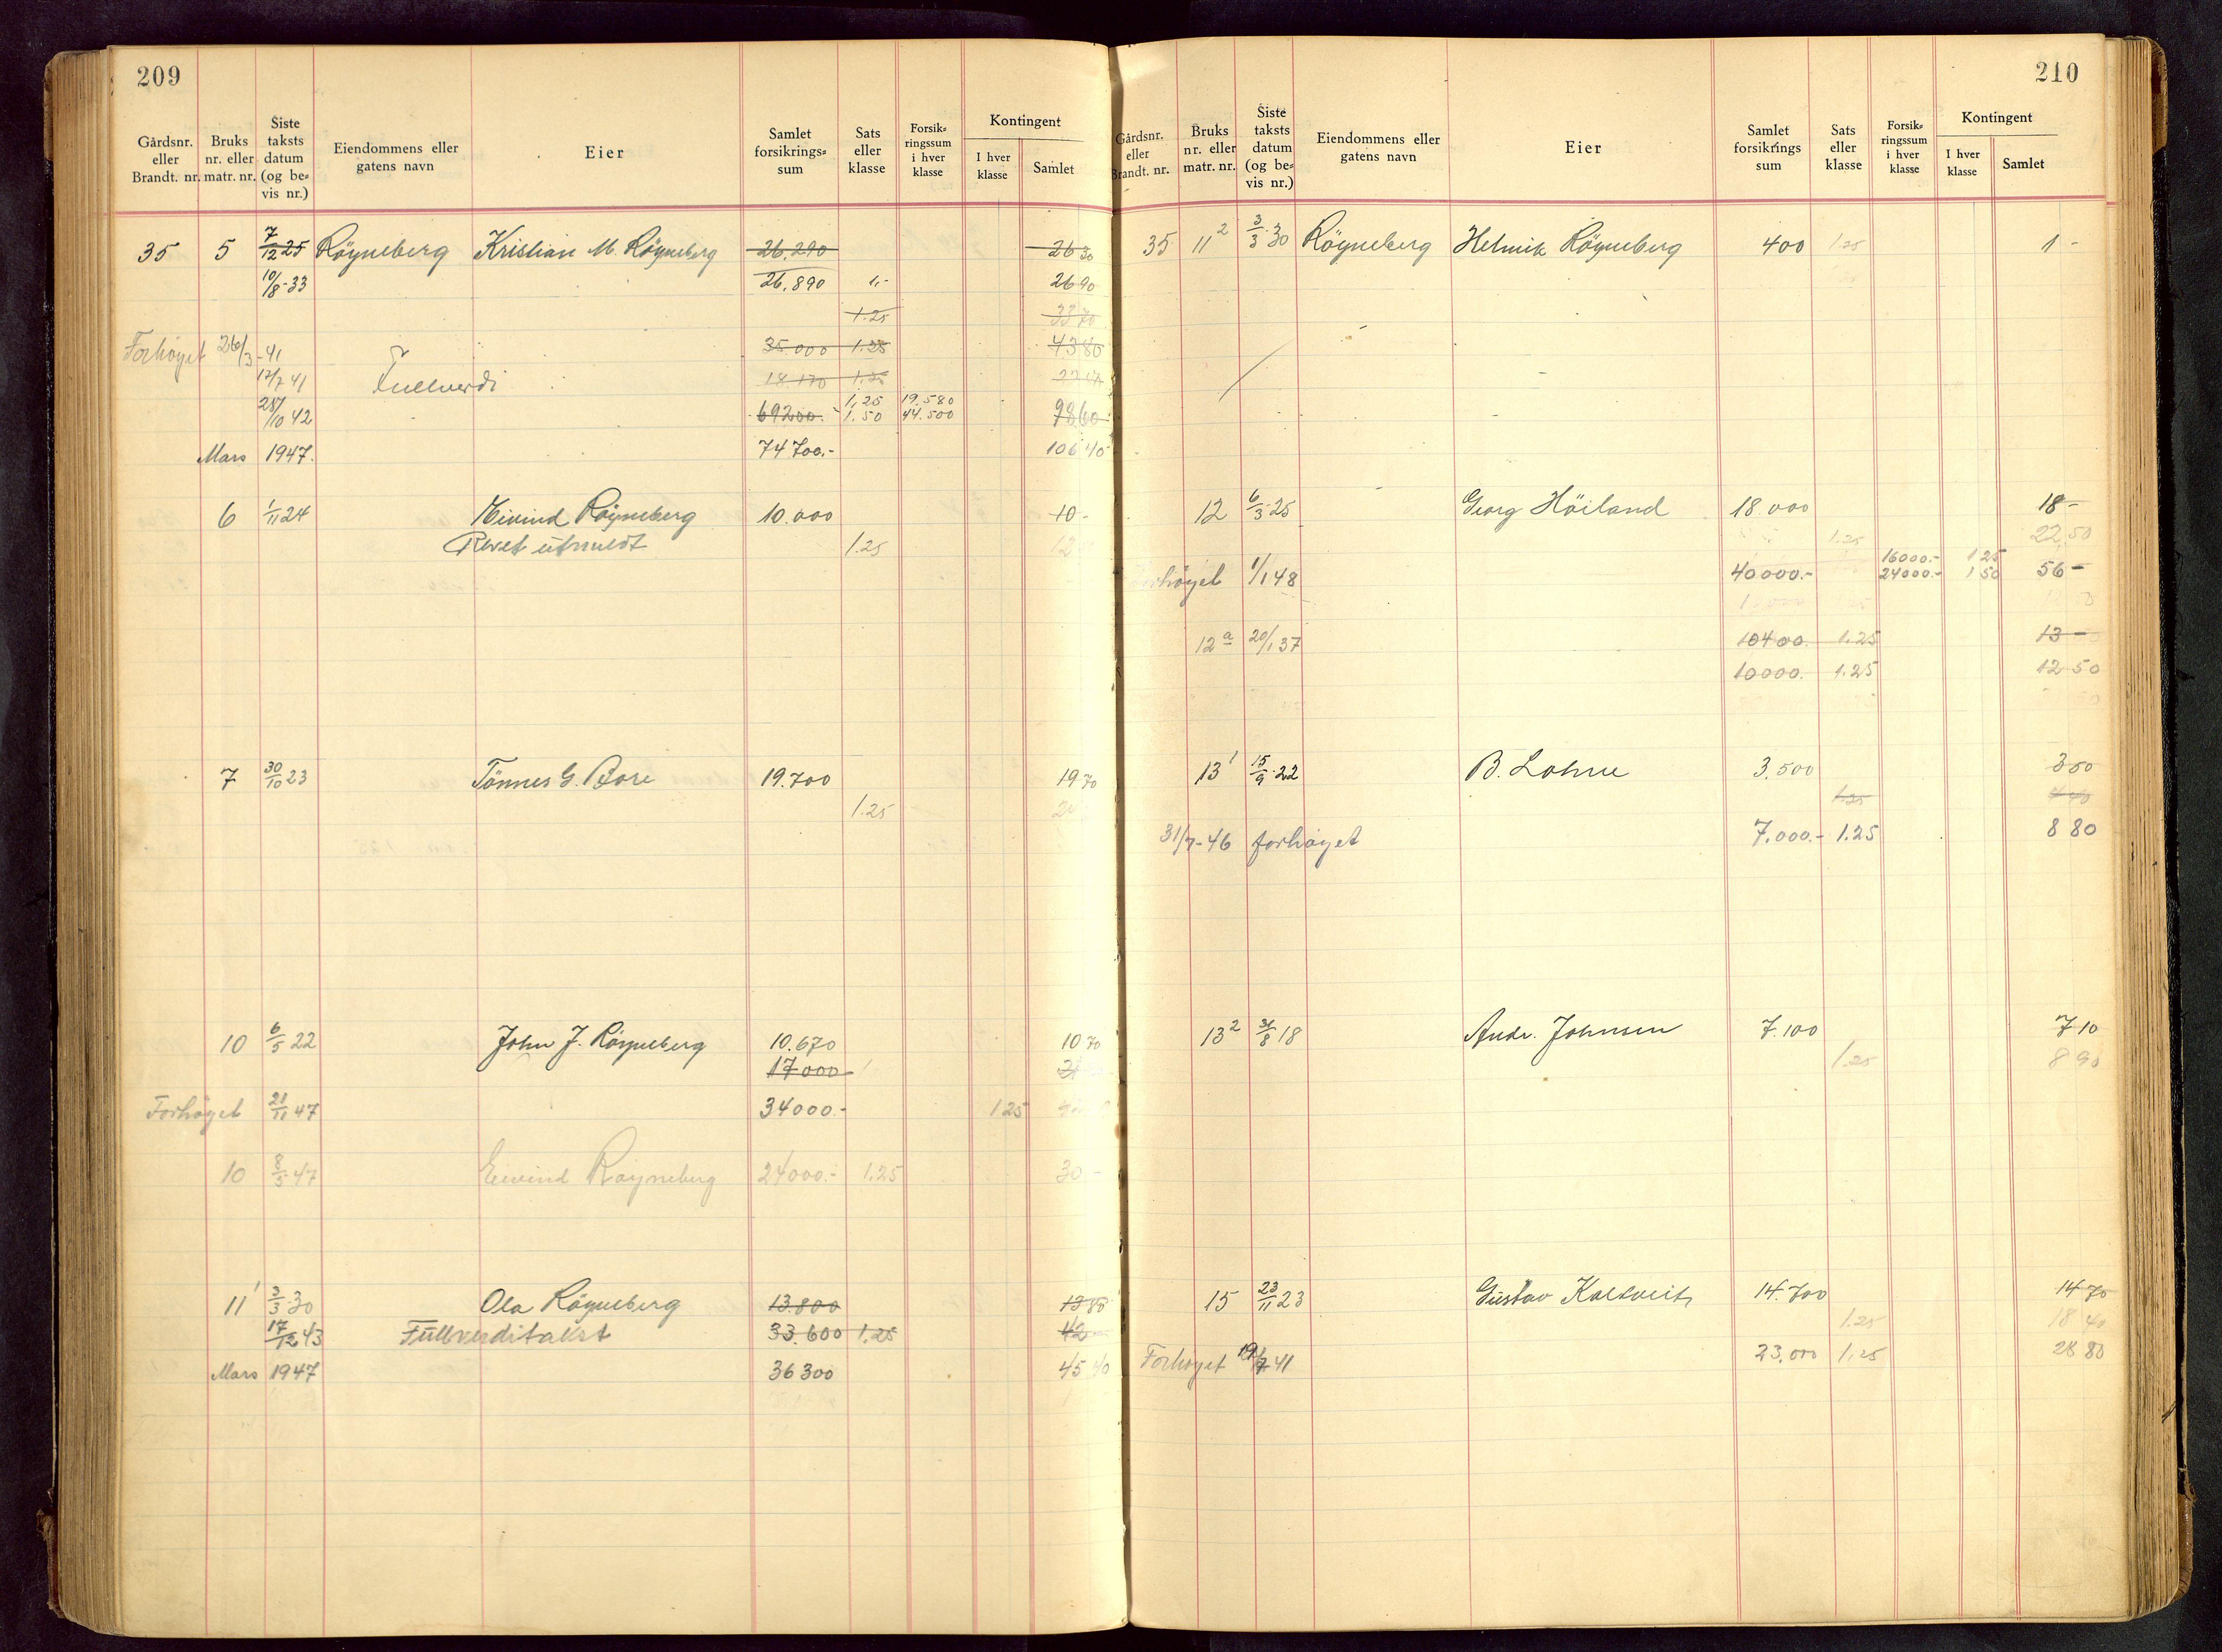 209
Gårdsnr. eller Brandt. nr.
Bruks nr. eller matr. nr.
Siste taksts datum (og be= vis nr.)
Eiendommens eller gatens navn
Eier
Samlet forsikrings= sum
Sats eller klasse
Forsik= ringssum i hver klasse
Kontingent
I hver klasse
Samlet
35 5 7/12 25 Röyneberg Kristian M. Röyneberg 26.290 26 30
10/8-33 26.890 1.- 26 90
1.25 33 70
Forhøyet 26/3-41 35.000 1.25 43 80
17/7 41 Fullverdi 18.170 1.25
28/10 42 69200.- 1,25 19.580 98 60
1.50 44.500
Mars 1947. 74700.- 106 40
6 1/11 24 Eivind Röyneberg 10.000 10 -
1.25
7 30/10 23 Tönnes G. Bore 19.700 19 70
1.25
10 6/5 22 John J. Röyneberg 10.670 10 70
17000
Forhøyet 21/11 47 34000.- 1 25
10 8/5-47 Eivind Røyneberg 24000.- 1.25 30 -
11¹ 3/3-30 Ola Röyneberg 13.800 13 80
17/12 43 Fullverditakst 33.600 1.25 42
Mars 1947 36300 45 40
210
Gårdsnr. eller Brandt. nr.
Bruks nr. eller matr. nr.
Siste taksts datum (og be= vis nr.)
Eiendommens eller gatens navn
Eier
Samlet forsikrings sum
Sats eller klasse
Forsik= ringssum i hver klasse
Kontingent
I hver klasse
Samlet
35 11² 3/3-30 Röyneberg Helmik Röyneberg 400 1.25 1 -
12 6/3-25 Georg Höiland 18.000 18 -
1.25 22.50
16000.- 1 25
Forhøyet 1/1 48 40000.- 24000.- 1 50 56 -
12ª 20/1 37 10400. 1.25 13 -
10000. 1.25 12 50
13¹ 15/9-22 B. Lohne 3.500 3 50
1.25
31/7-46 forhøyet 7.000.- 1.25 8 80
13² 31/8 18 Andr. Johnsen 7.100 7 10
1.25 8 90
15 23/11 23 Gustav Kaltveit 14.700 14 70
1.25 18 40
Forhøyet 19/7 41 23.000 1.25 28 80